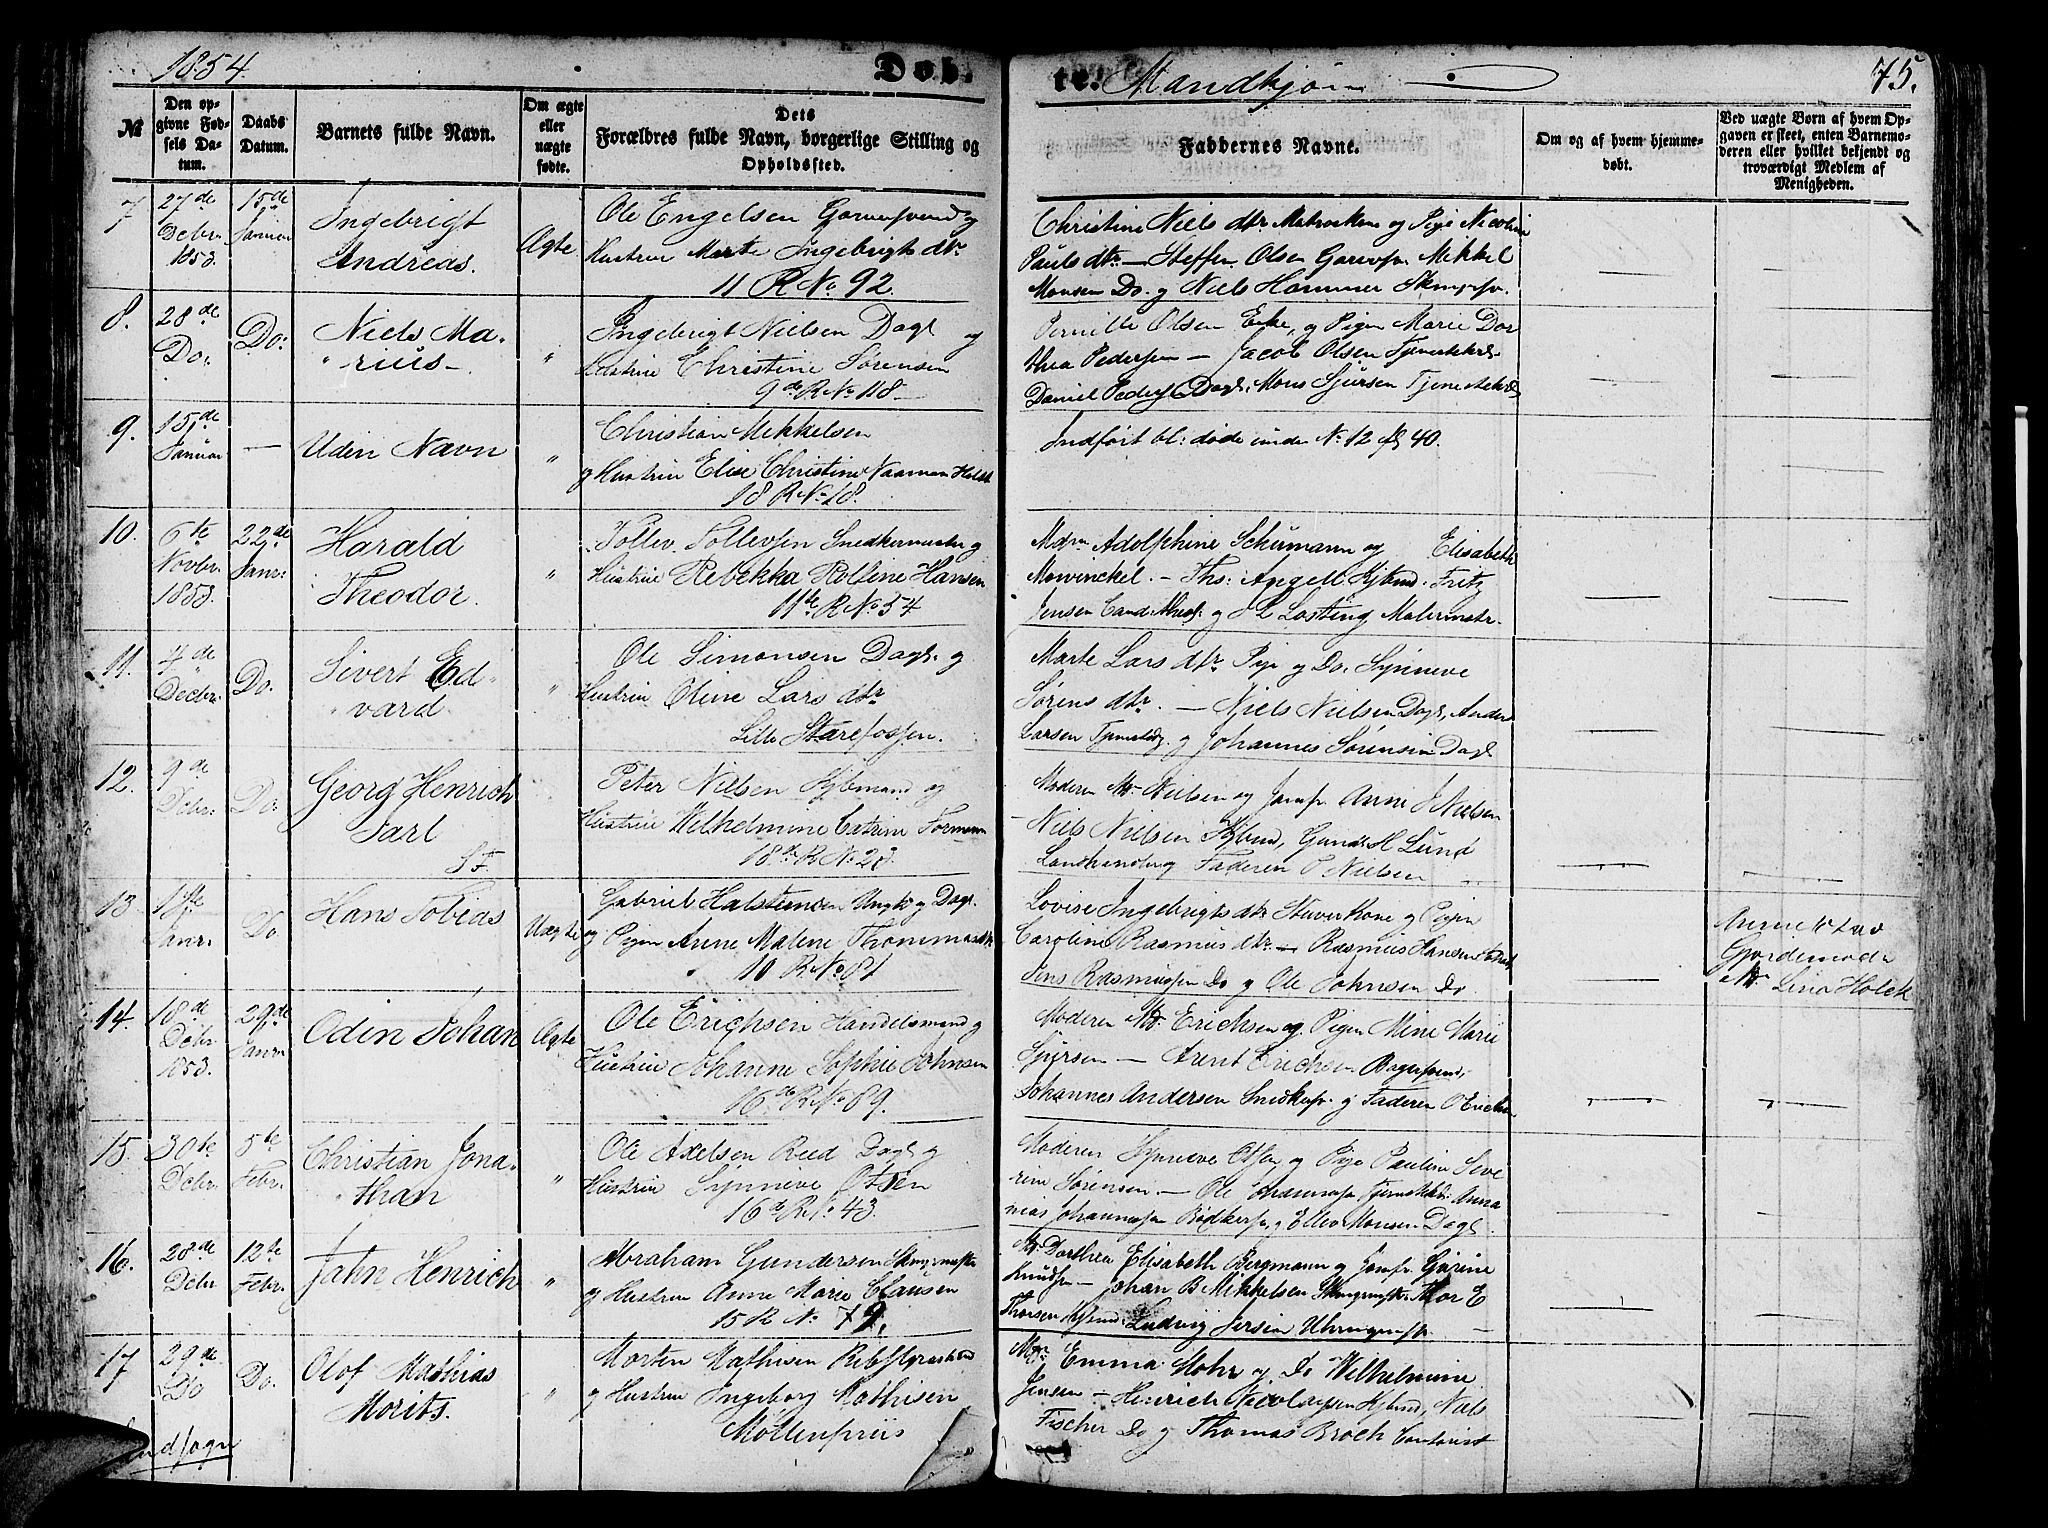 1854
Døb-
te. Mandkjøn
75.
№
Den op-
givne Fød-
sels Da-
tum.
Daabs
Datum.
Barnets fulde Navn.
Om ægte
eller
uægte
fødte.
Dets
Forældres fulde Navn, borgerlige Stilling og
Opholdssted.
Faddernes Navne.
Om og af hvem hjemme-
døbt.
Ved uægte Børn af hvem Op-
gaven er skeet, enten Barnemo-
deren eller hvilket bekjendt og
troværdigt Medlem af
Menigheden.
7
27de
Debr.
1853.
15de
Januar
Ingebrigt
Andreas.
Ægte
Ole Engelsen Garversvend og
Hustrue Marte Ingebrigts dtr
11 R No. 92.
Christine Niels dtr Matroskone og Pige Nicoline
Pauls dtr — Steffen Olsen Garversv. Mikkel
Monsen Do. og Niels Hammer Skræp.
8.
28de
Do:
Do:
Niels Ma-
rius
"
Ingebrigt Nielsen Dagl og
Hustrue Christine Sørensen
9de R No 118
Pernille Olsen Enke, og Pigen Marie Dor
thea Pedersen — Jacob Olsen Tjenestekrl
Daniel Peders Dagl. Mons Sjursen Tjenestek
9.
15de
Januar
—
Uden Navn
"
Christian Mikkelsen
og Hustrue Elise Christine Naaman Holst
18 R No 18.
Indført bl: døde under No 12 fl 40.
10.
6te
Novbr.
1853.
22de
Janr:
Harald
Theodor.
"
Tollev Tollevsen Snedkermester og
Hustrue Rebekka Rolline Hansen
11te R No 54
Mdm Adolphine Schumann og Elisabeth
Mowinckel. — Ths: Angell Kjbmd. Fritz
Jensen Cand: Theol. og J L Losting Malermstr.
11.
4de
Decbr.
Do.
Sivert Ed-
vard
"
Ole Simonsen Dagl. og
Hustrue Oline Lars dtr
Lille Starefossen.
Marte Lars dtr Pige og Do. Synneve
Sørens dtr. — Niels Nielsen Dagl, Anders
Larsen Tjenestekrl og Johannes Sørensen Dagl
12.
9de
Debr.
Do:
Georg Henrich
Jarl
Peter Nielsen Kjbmand og
Hustrue Wilhelmine Catrine Formann
18de R No 28.
Moderen M. Nielsen og Jomfr Anne J Nielsen
— Niels Nielsen Kjbmd, Gunder M Lund
og Faderen P Nielsen
13
1ste
Janr:
Do.
Hans Tobias
Uægte
Gabriel Halstensen Ungk og Dagl.
og Pigen Anne Malene Thommasdtr
10 R No 81
Lovise Ingebrigts dtr Stuverkone og Pigen
Caroline Rasmus dtr. — Rasmus Hansen
Jens Rasmussen Do og Ole Johnsen Do.
Anmeldt av
Gjordemoder
M. Lina Holck
14.
18de
Debr
1853.
29de
Janr.
Odin Johan
Ægte
Ole Erichsen Handelsmand og
Hustrue Johanne Sophie Johnsen
16de R No 89.
Moderen M. Erichsen og Pigen Mine Marie
Sjursen — Arent Erichsen Bagersvend,
Johannes Andersen Snedkersv. og Faderen O Erichsen
15.
30te
Debr.
5te
Febr.
Christian Jona-
than
"
Ole Axelsen Reed Dagl og
Hustrue Synneve Olsen
16de R No 43.
Moderen Synneve Olsen og Pige Pauline Seve
rine Sørensen. — Ole Johannesen Tjenestekrl. Anna
nias Johannessen Bødkersv. og Ellev Monsen Dagl.
16.
28de
Debr
12te
Febr.
Jahn Henrich
"
Abraham Gundersen Skomagermester
og Hustrue Anne Marie Clausen
15 R No 79.
M. Dorthea Elisabeth Bergmann og Jomfr. Gurine
Knudsen — Johan B Mikkelsen Skomagermstr. Thor E
Thorsen Kjbmd. Ludvig Jersin Uhrmagermstr.
17
29de
Do
Do.
Olof Mathias
Morits.
"
Morten Mathisen
og Hustrue Ingeborg Mathisen
Møllenpriis
Mdm Emma Mohr og Do Wilhelmine
Jensen — Henrich Nicolaysen Kjbmd, Niels
Fischer Do og Thomas Broch Contorist
Landsogn